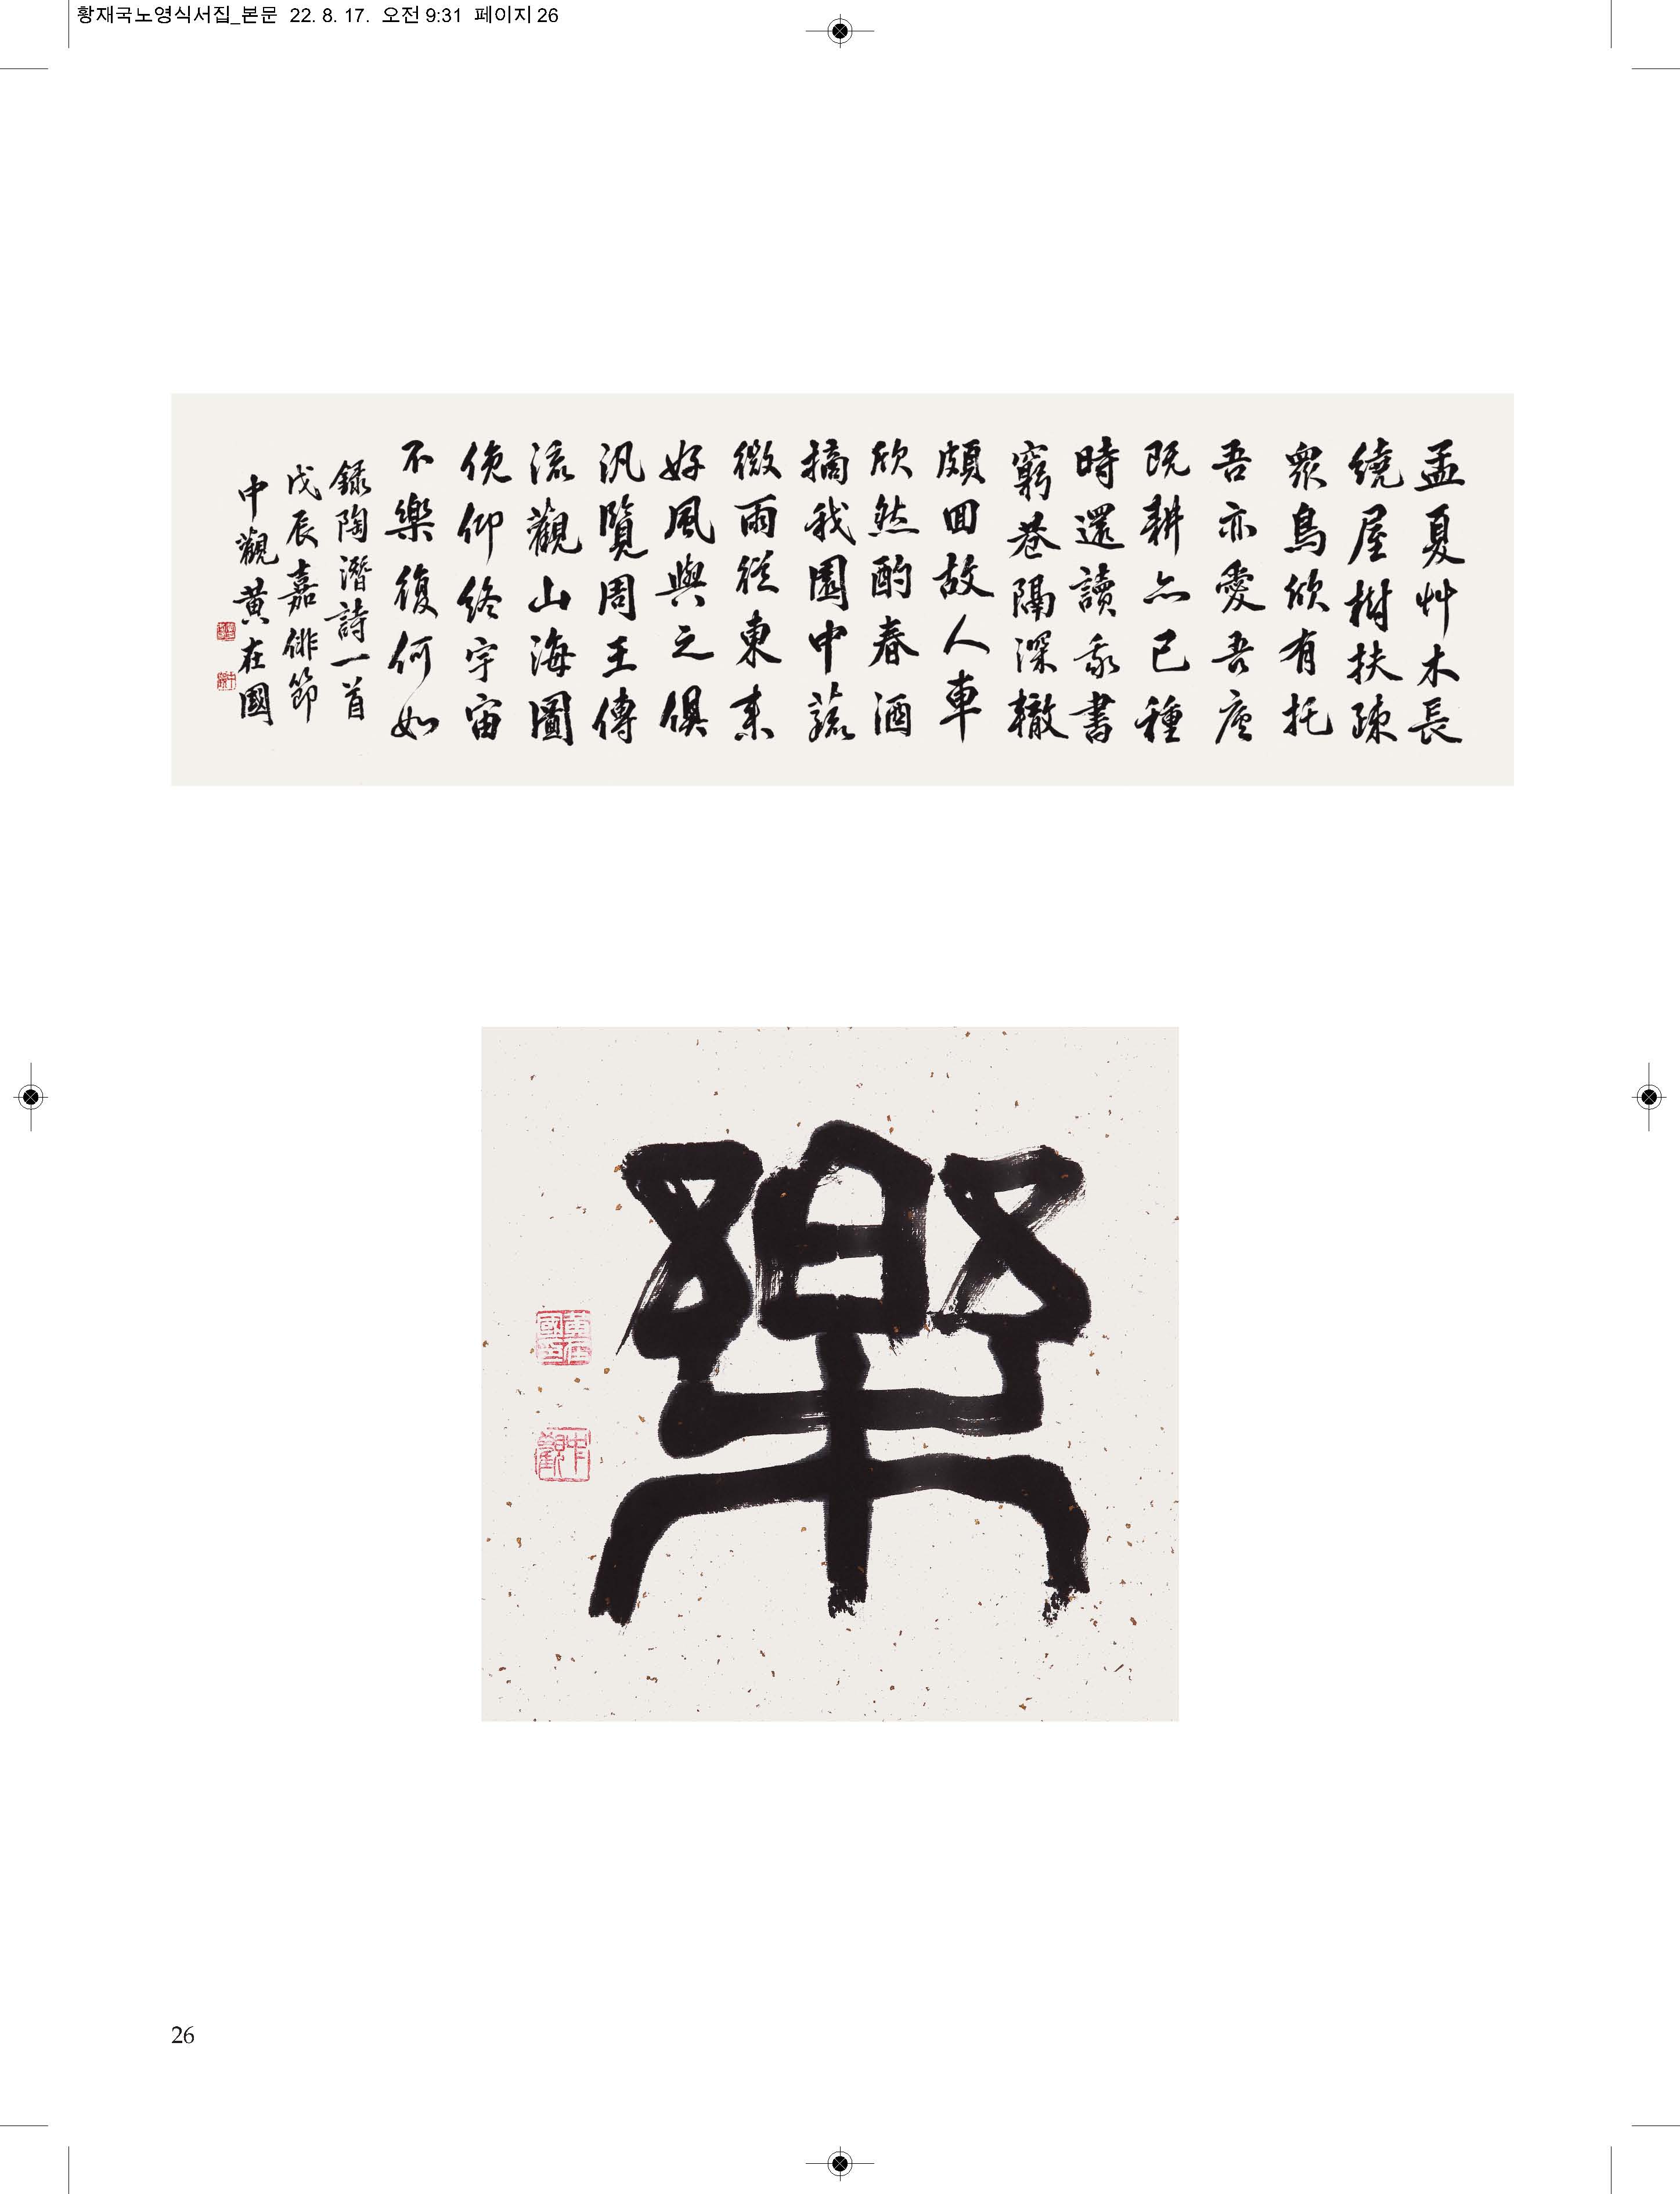 황재국노영식서집_본문 22. 8. 17. 오전 9:31 페이지 26
孟夏艸木長
繞屋樹扶疎
衆鳥欣有托
吾亦愛吾廬
既耕亦已種
時還讀我書
窮巷隔深轍
頗回故人車
欣然酌春酒
摘我園中蔬
微雨從東來
好風與之俱
汎覽周王傳
流觀山海圖
俛仰終宇宙
不樂復何如
錄陶潛詩一首
戊辰嘉俳節
中觀黃在國
樂
黃在國印
中觀
26